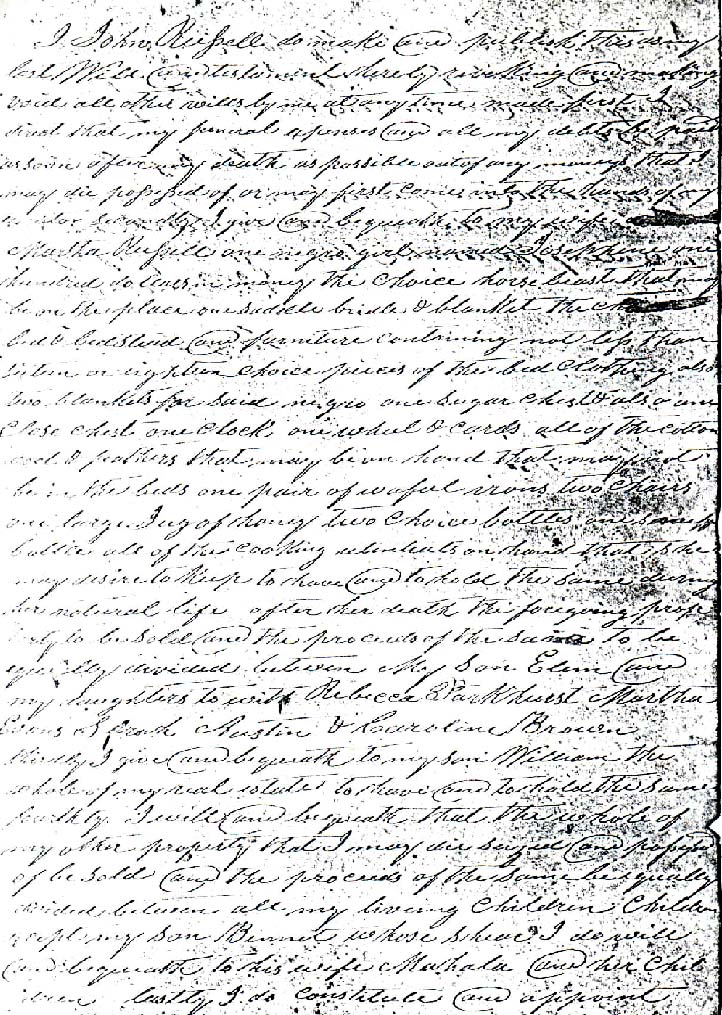 I John Russell do make and publish this as my
last Will and testament hereby revoking and making
void all other wills by me at any time made first I
direct that my funeral expenses and all my debts be paid
as soon after my death as possible out of any moneys that I
may die possessed of or may first come into the hands of my
secondly I give and bequeath to my wife
Martha Russell one negro girl named Josephine one
hundred dollars in money the choice horse beast that may
be on the place one saddle bridle & blanket the
bed & bedstead and furniture containing not less than
sixteen or eighteen choice pieces of the bed clothing also
two blankets for said negro one sugar chest & also one
close chest one clock one wheel & cards all of the cotton
wool & feathers that may be on hand that may not
be in the beds one pair of waful irons two chairs
one large Jug of honey two choice bottles one
bottle all of the cooking utentials on hand that is she
may desire to keep to have and to hold the same during
her natural life after her death the foregoing prop
erty to be sold and the proceeds of the same to be
equally divided between My son Elem and
my daughters to with Rebecca Parkhurst Martha
Evans Sarah Austin & Caroline Brown
thirdly I give and bequeath to my son William the
whole of my real estate to have and to hold the same
fourthly I will and bequeath that the whole of
my other property that I may die seized and possessed
of be sold and the proceeds of the same be equally
divided between all my living children Children
except my son Bennet whose shear I do will
and bequeath to his wife Mahala and her chil
dren lastly I do constitute and appoint